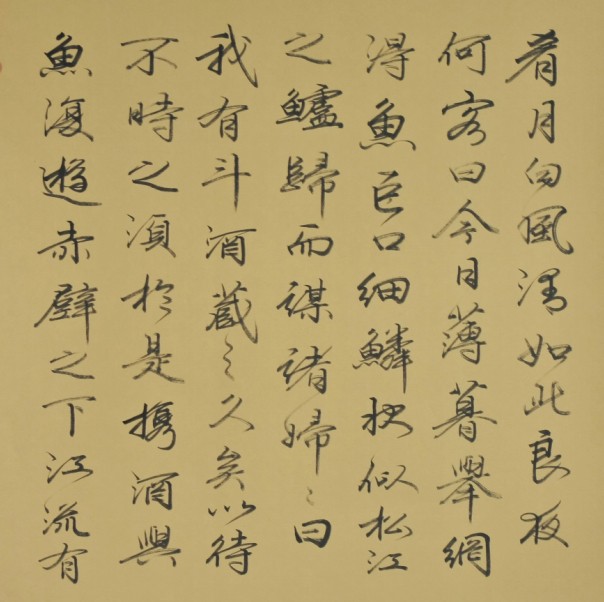 肴月白風清如此良夜
何客曰今日薄暮舉網
得魚巨口細鱗狀似松江
之鱸歸而謀諸婦〻曰
我有斗酒藏之久矣以待
不時之須於是攜酒與
魚復遊赤壁之下江流有